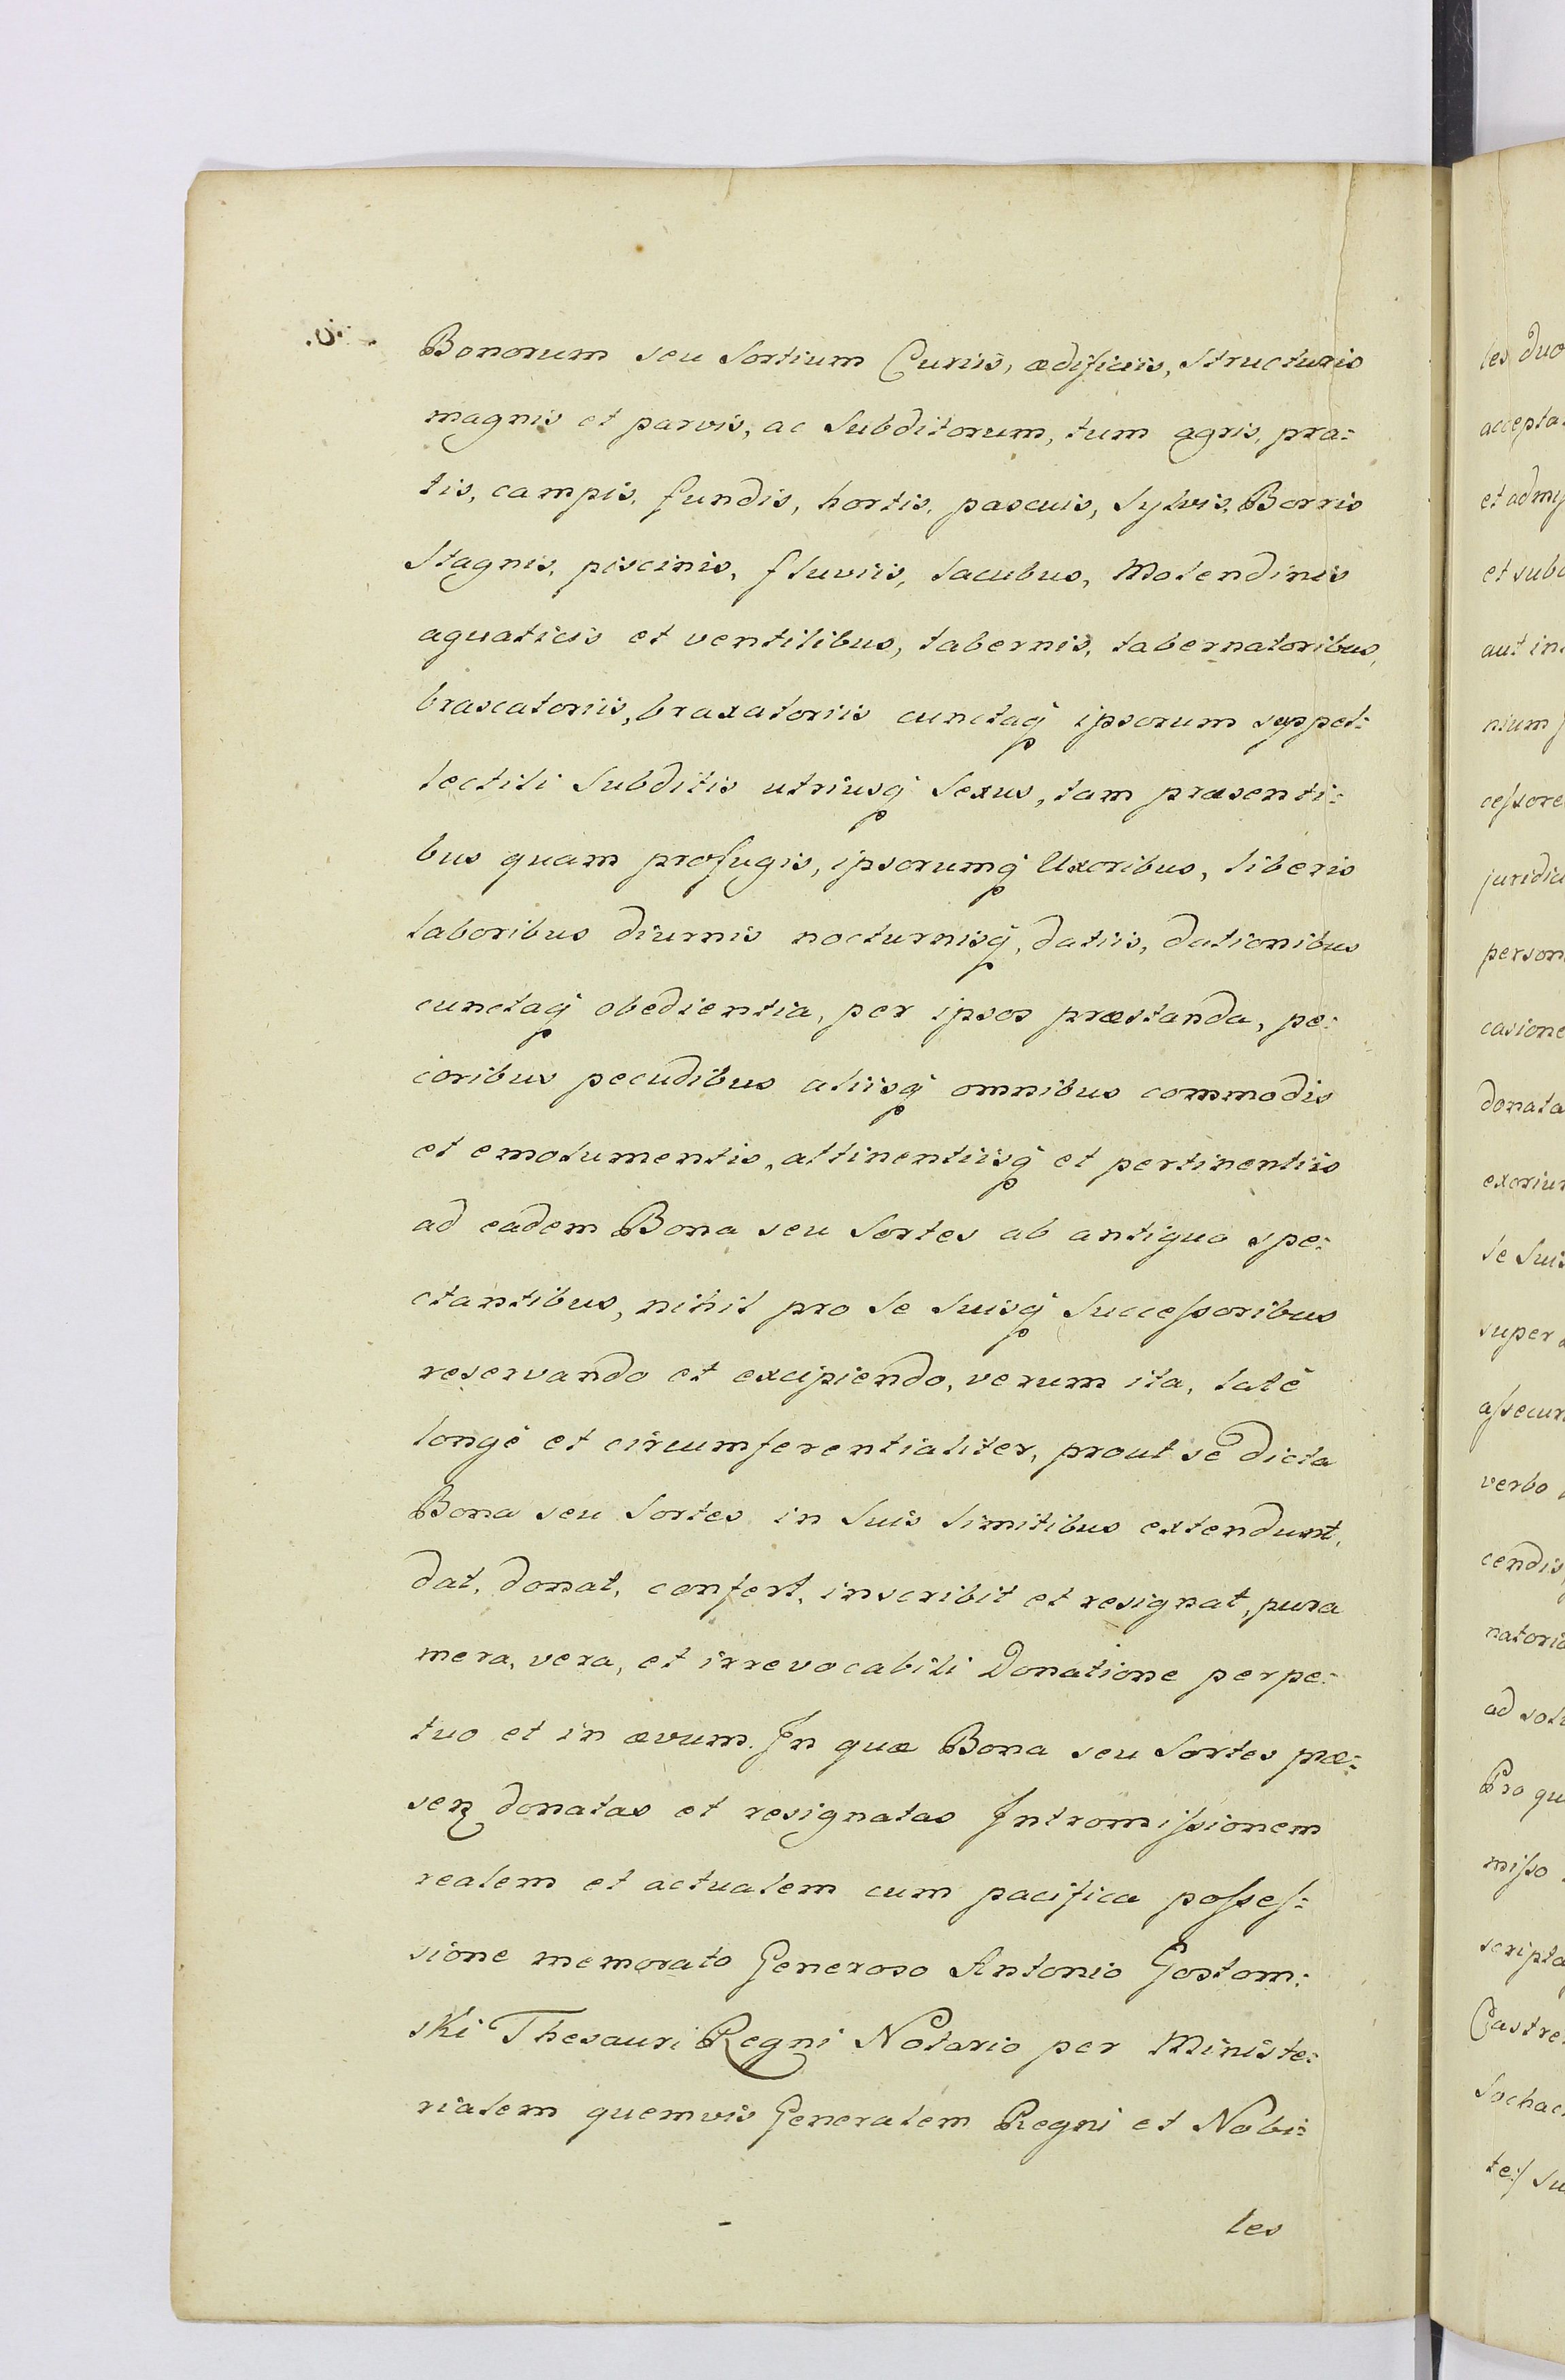 Bonorum seu Sortium Curiis, ædificiis, Structuris
magnis et parvis, ac Subditorum, tum agris, pra=
tis, campis, fundis, hortis, pascuis, Sylvis, Borris
Stagnis, piscinis, fluviis, lacubus, Molendinis
aquaticis et ventilibus, tabernis, tabernatoribus,
brascatoriis, braxatoriis cunctaq ipsorum suppel=
lectili Subditis utriusq Sexus, tam præsenti=
bus quam profugis, ipsorumq Uxoribus, liberis
laboribus diurnis nocturnisq, datiis, dationibus
cunctaq obedientia, per ipsos præstanda, pe=
coribus pecudibus aliisq omnibus commodis
et emolumentis, attinentiisq et pertinentiis
ad eadem Bona seu Sortes ab antiquo spe=
ctantibus, nihil pro Se Suisq Succeſsoribus
reservando et excipiendo, verum ita, latè
longè et circumferentialiter, prout se dicta
Bona seu Sortes in Suis limitibus extendunt,
dat, donat, confert, inscribit et resignat, pura
mera, vera, et irrevocabili Donatione perpe=
tuo et in ævum. In quæ Bona seu Sortes præ=
sen donatas et resignatas Intromiſsionem
realem et actualem cum pacifica poſseſ=
sione memorato Generoso Antonio Gostom=
ski Thesauri Regni Notario per Ministe=
rialem quemvis Generalem Regni et Nobi=
les
les duo
accepta
et admiſ
et sub
aut in
nium
ceſsore
juridic
person
casione
donata
exoriu
Se Suis
super
aſsecur
verbo
cendis
natori
ad sol
Pro qu
miſso
scripta
Castre
Sochac
te:/ Su